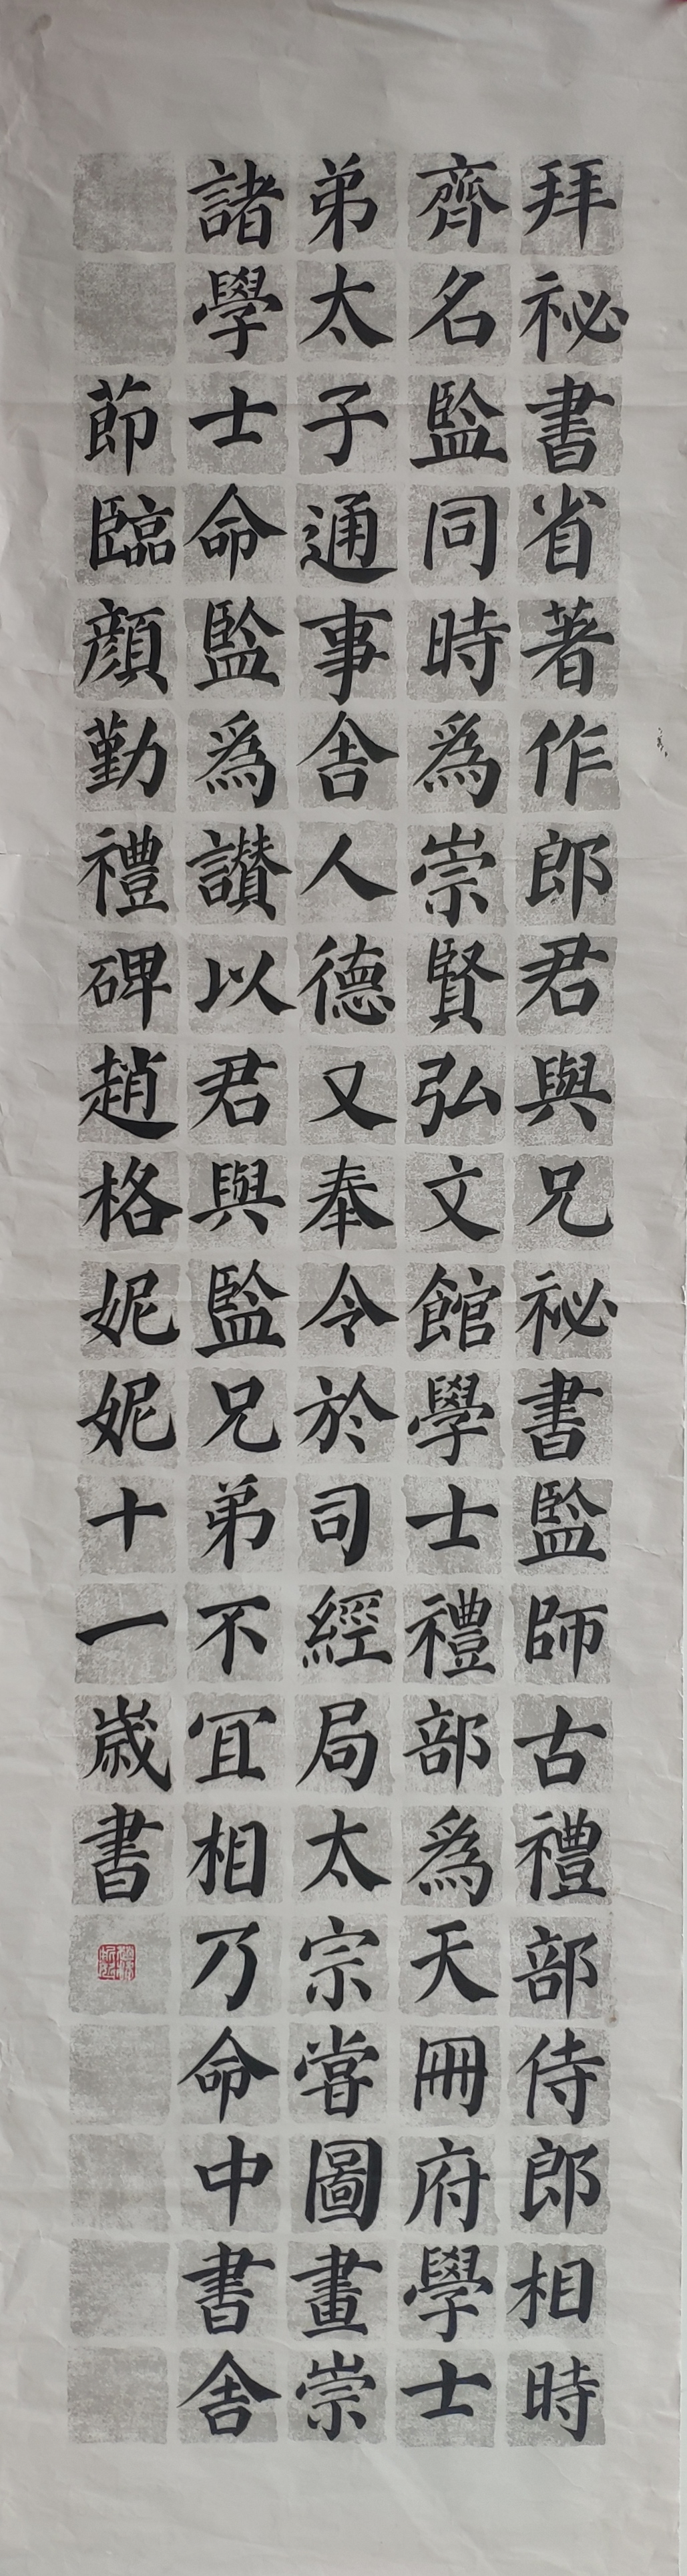 拜祕書省著作郎君與兄祕書監師古禮部侍郎相時
齊名監同時為崇賢弘文館學士禮部為天冊府學士
弟太子通事舍人德又奉令於司經局太宗嘗圖畫崇
諸學士命監為讚以君與監兄弟不宜相乃命中書舍
節臨顏勤禮碑趙格妮妮十一歲書